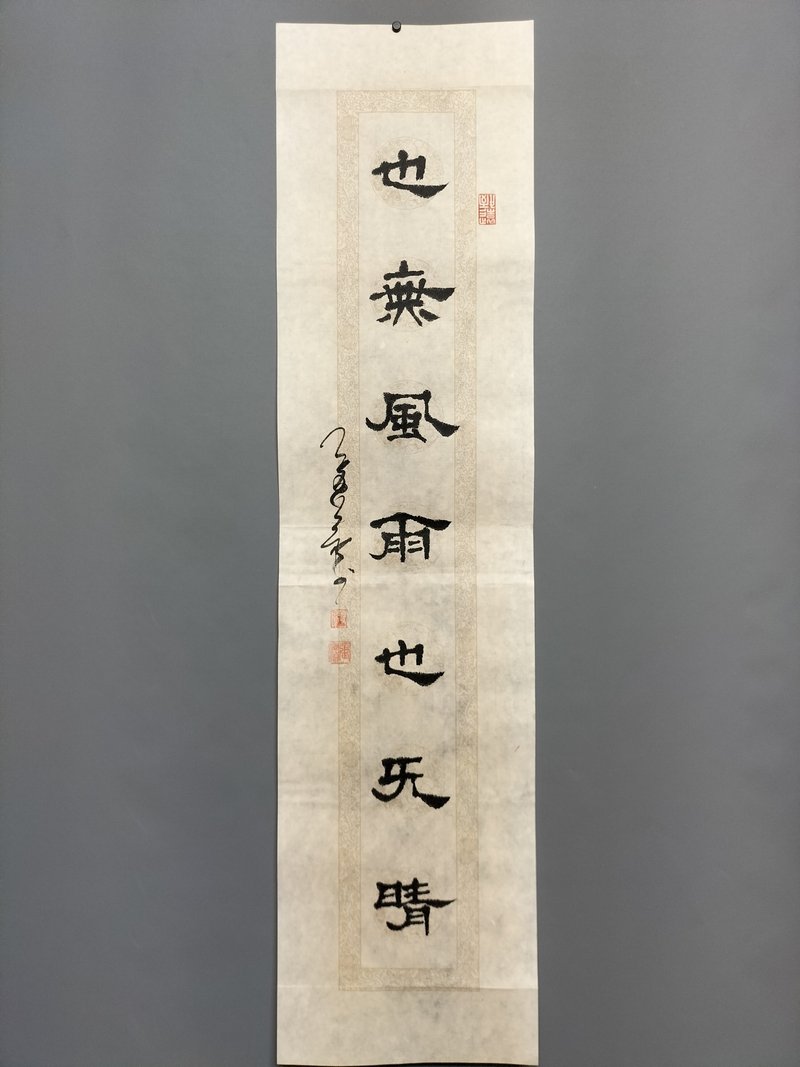 也無風雨也旡晴